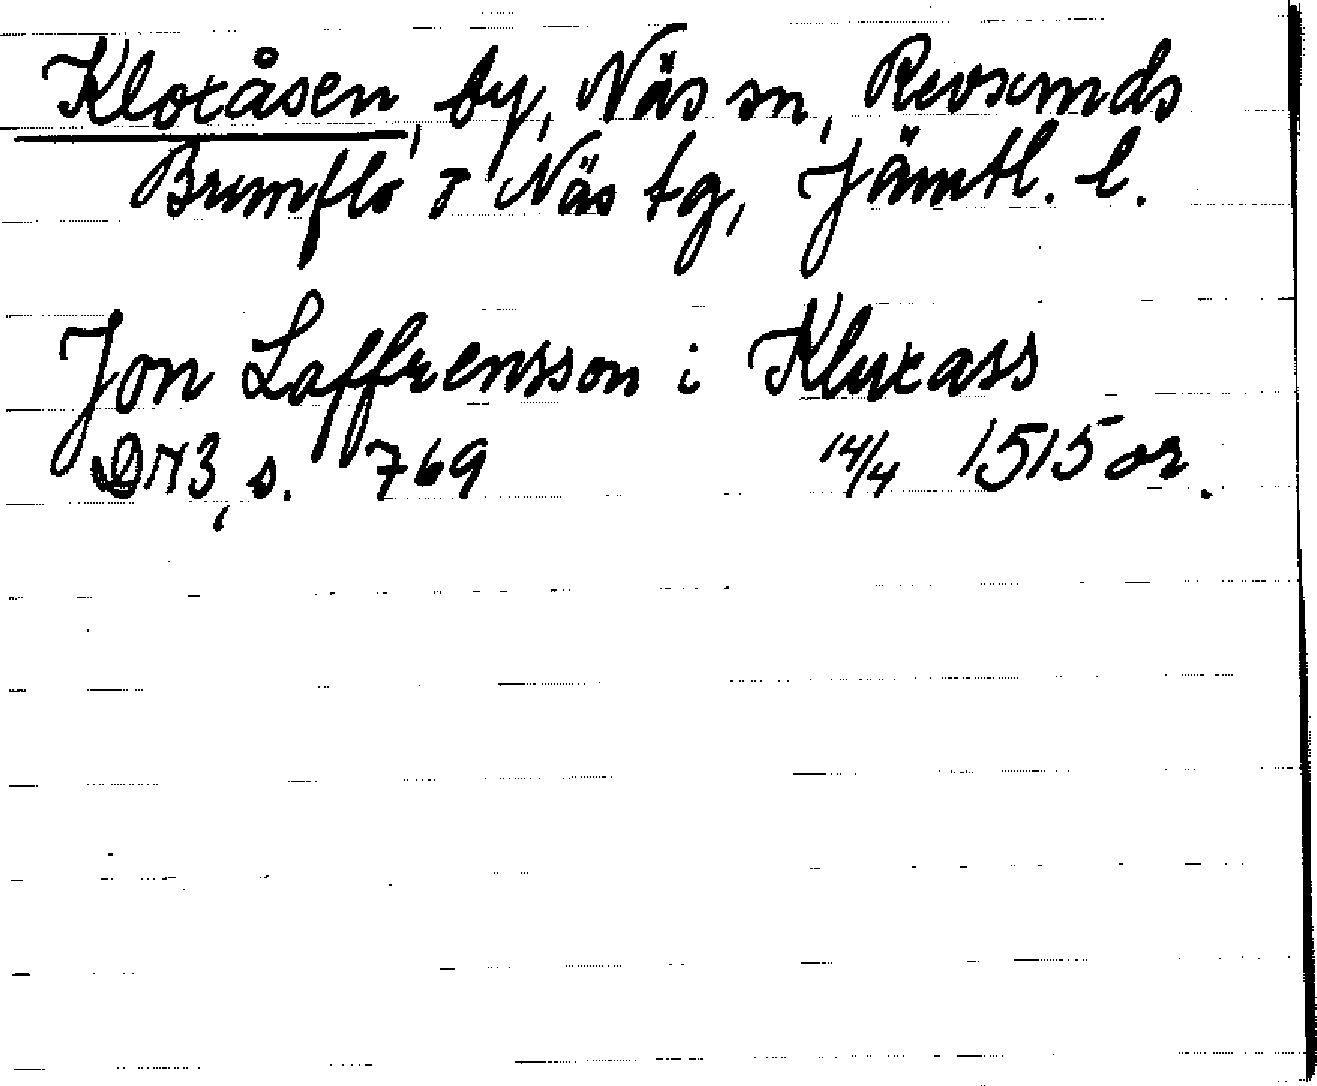 Kloxåsen, by, Näs sn, Revsunds
Brunflo o Näs tg, Jämtl. l.
Jon Laffrensson i Kluxass
DN3, s. 769 14/4 1515 or.